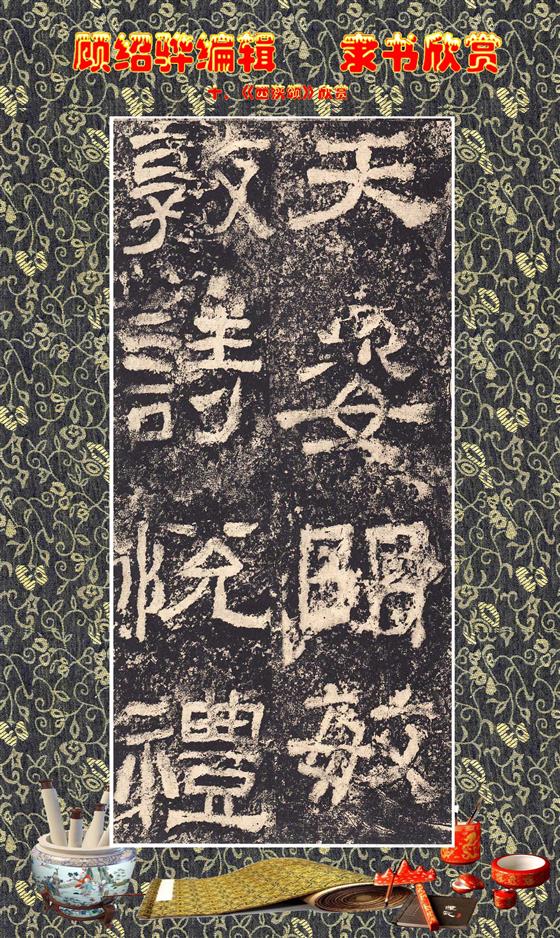 顾绍骅编辑 隶书欣赏
十、《西狭颂》欣赏
天姿明敏
敦詩悅禮